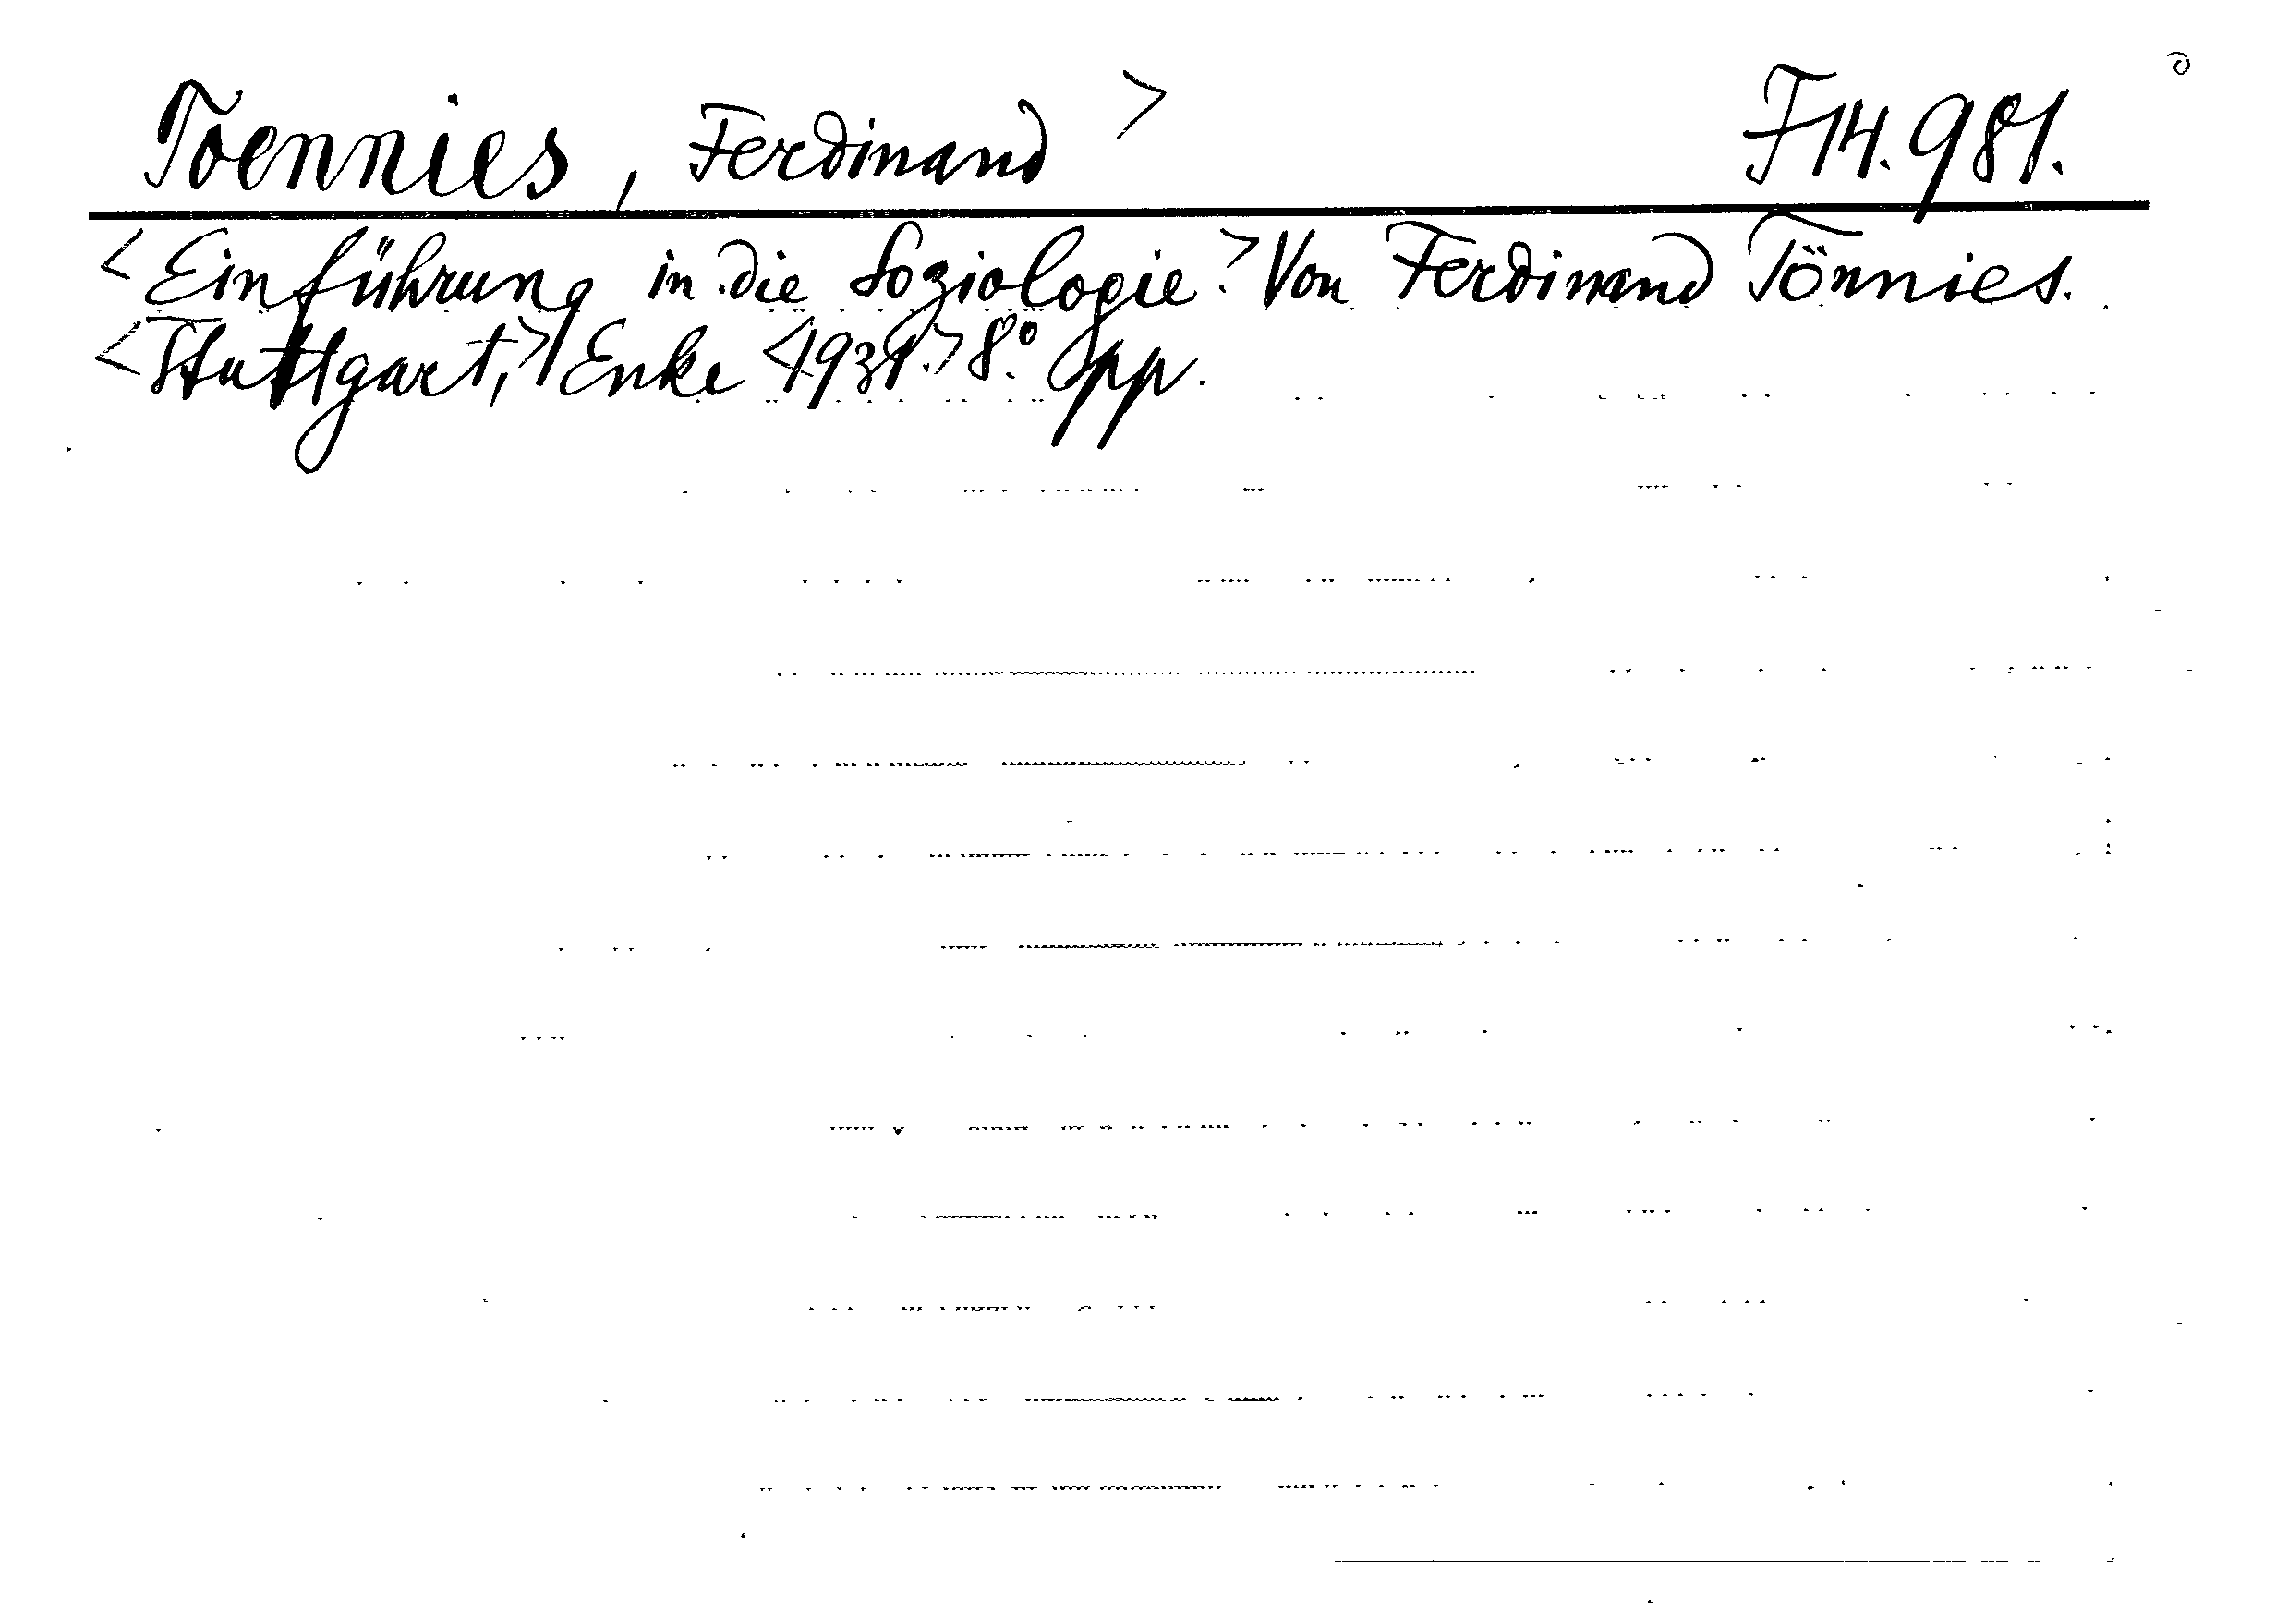 Toennies, Ferdinand > F 14.981.
<Einführung in die Soziologie.> Von Ferdinand Tönnies.
<Stuttgart,> Enke <1931.> 8.° Opp.